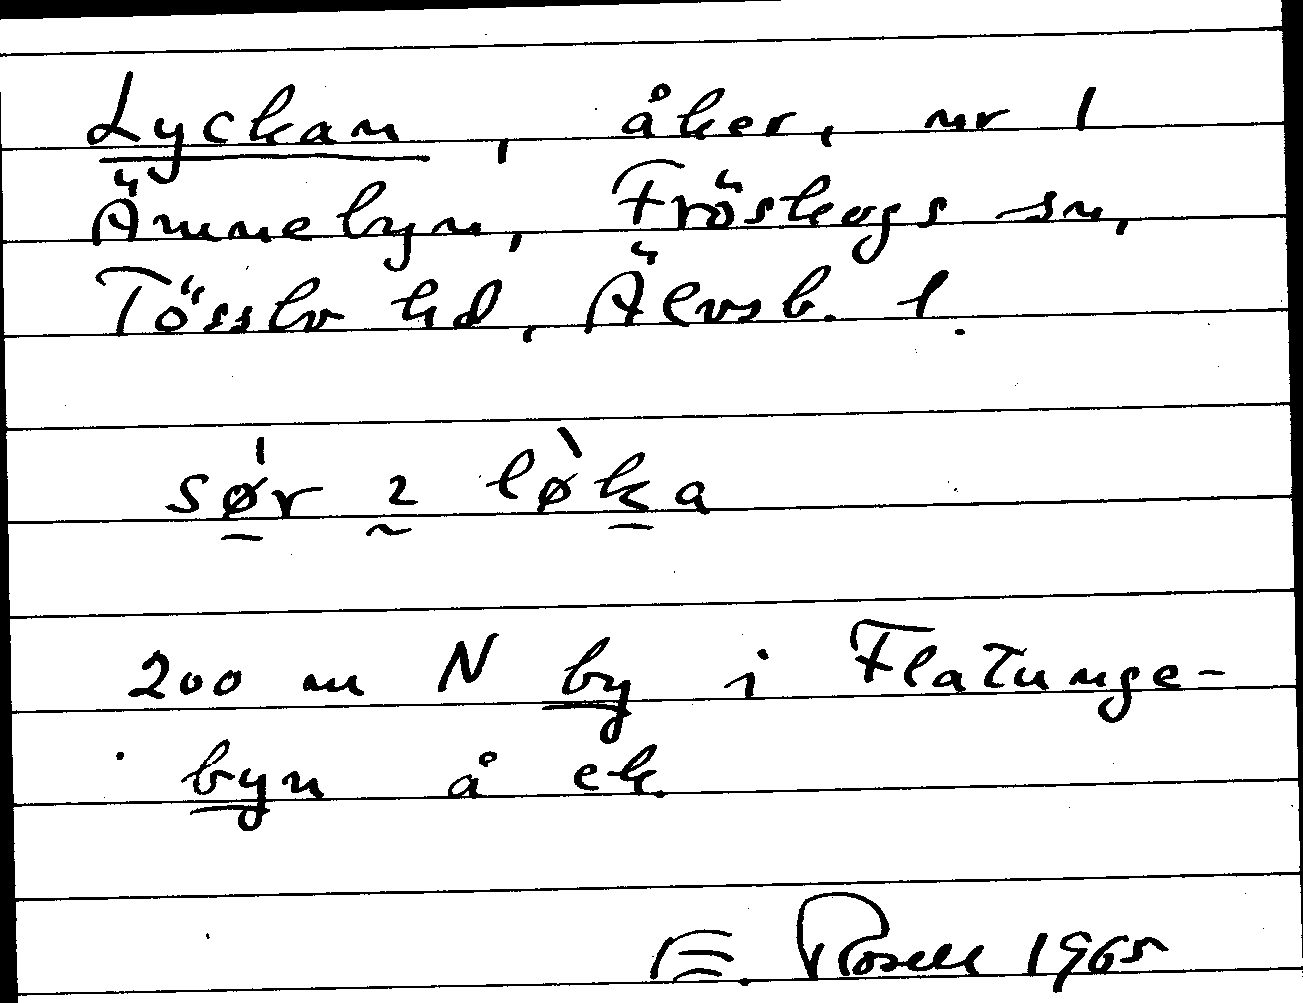 Lyckan, åker, nr 1
Ämnebyn, Fröskogs sn,
Tössbo hd, Älvsb. l.
sør 2 løka
200 m N by i Flatunge-
byn å ek.
E. Rosell 1965